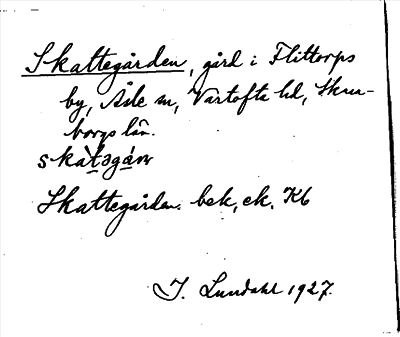 Skattegården, gård i Flittorps
by, Åsle sn, Vartofta hd, Skara-
borgs län.
skat̀əgán
Skattegården. bek, ek. Kb
I. Lundahl 1927.